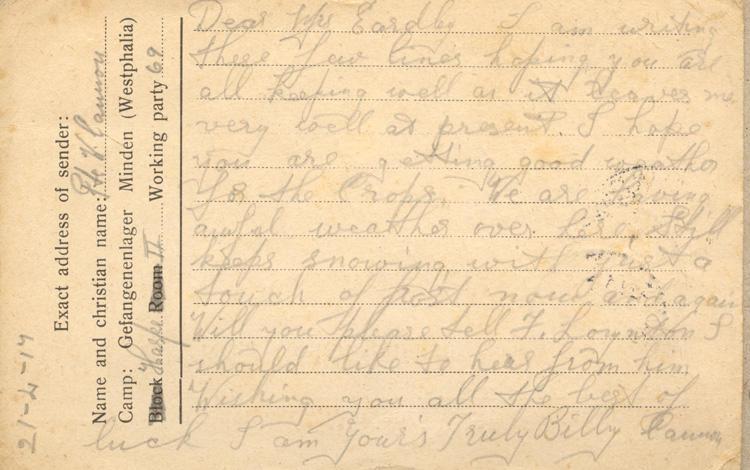 Exact address of sender:
Name and christian name: Pte W Cannon
Camp: Gefangenenlager Minden (Westphalia)
Block Room II Working party 69
21-4-17
Dear Mrs I am writing
these few lines hoping you are
all keeping well as it leaves me
very well at present. I hope
you are getting good weather
for the Crops. We are having
awful weather over here still
keeps snowing with just a
touch of frost now and again
Will you please tell F. I
should like to hear from him
Wishing you all the best of
luck I am Your's Truly Billy Cannon